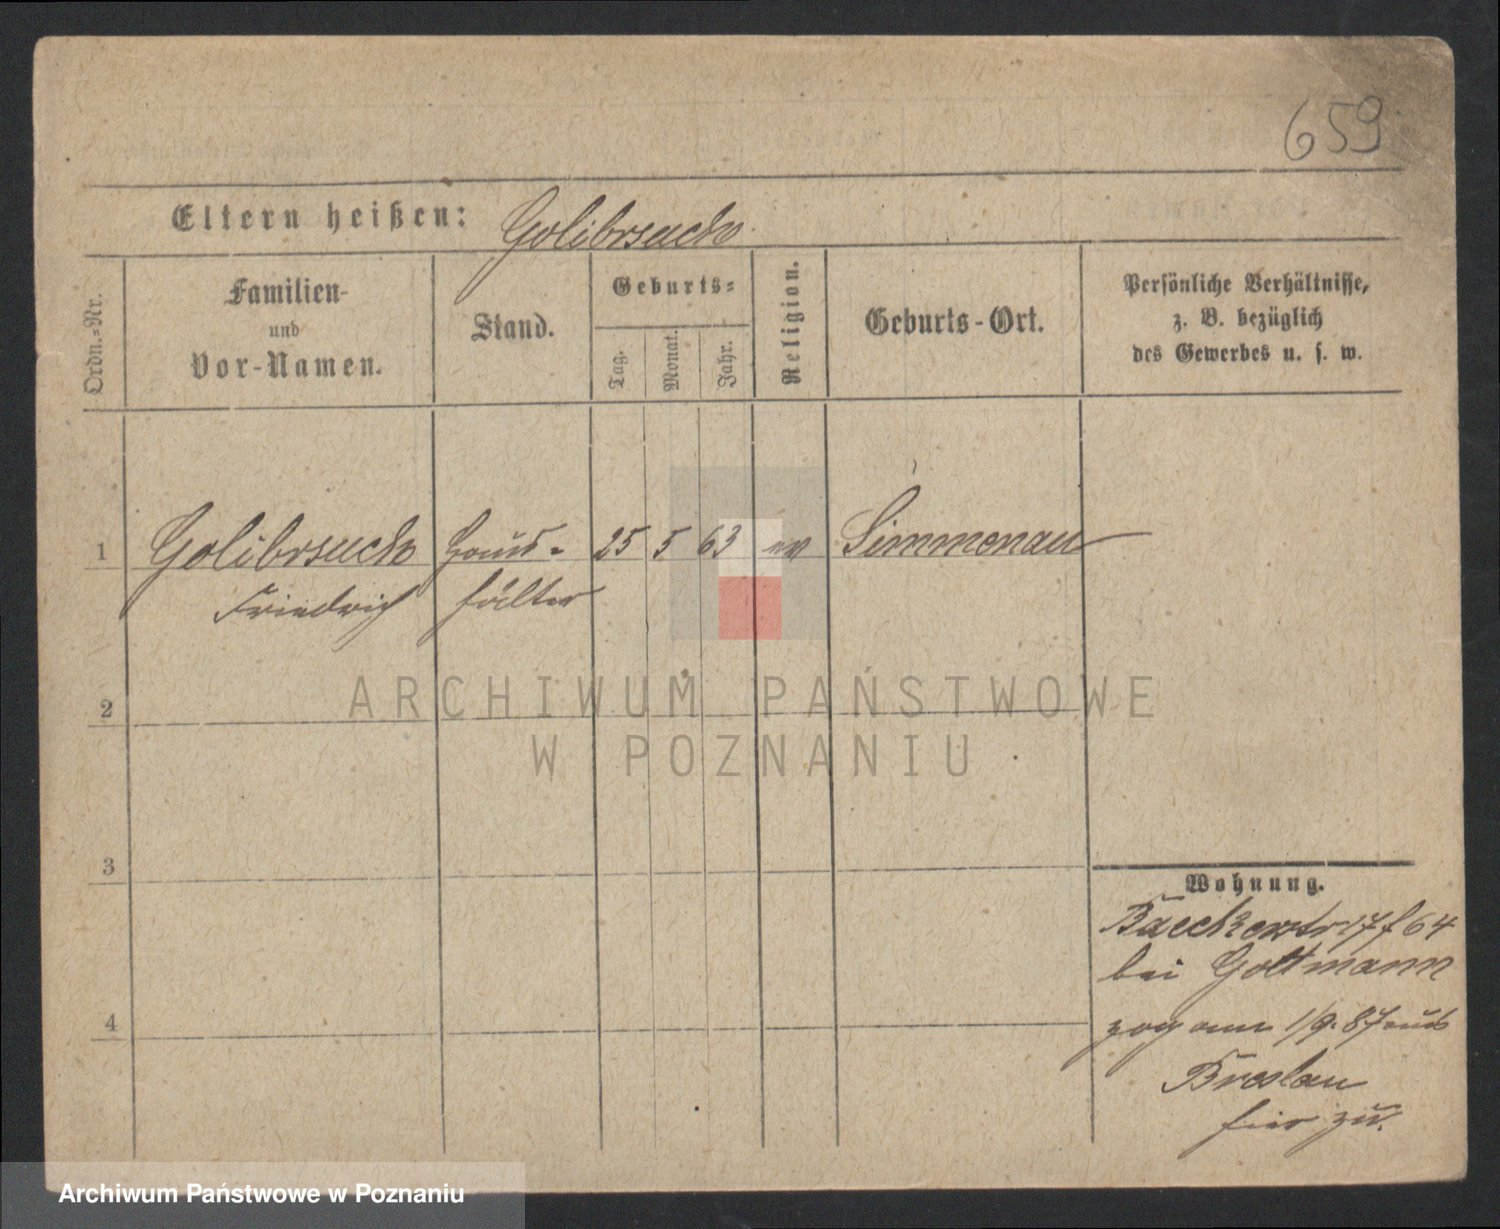 659
Eltern heißen: Golibrsuch
Ordn.-Nr.
Familien-
und
Vor-Namen.
Stand.
Geburts-
Tag.
Monat.
Jahr.
Religion.
Geburts-Ort.
Persönliche Verhältnisse,
z. B. bezüglich
des Gewerbes u. s. w.
1 Golibrsuch Haus- 25 5 63 ev Simmenau
Friedrich hälter
2
ARCHIWUM PAŃSTWOWE
W POZNANIU
3
Wohnung.
Baeckerstr 17 f 64
bei Gottmann
4
zog am 1/9. 87 aus
Breslau
hier zu.
Archiwum Państwowe w Poznaniu